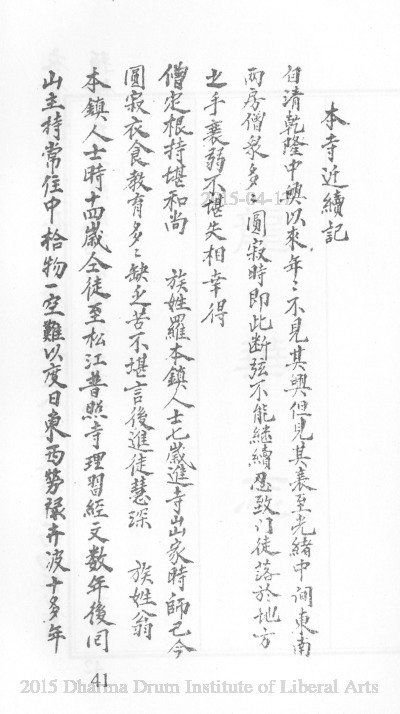 本寺近續記
自清乾隆中興以來年々不見其興但見其衰至光緒中间東南
兩房僧衆多々圓寂時即此断弦不能継續忍致门徒落於地方
之手衰弱不堪失相幸得
僧定根持堪和尚 族姓羅本鎮人士七歲進寺出家時師已今
圓寂衣食教育多々缺乏苦不堪言後進徒慧琛 族姓翁
本鎮人士時十四歲仝徒至松江普照寺理習經文数年後囘
山主持常住中拾物一空難以度日東西勞祿奔波十多年
2015-04-1
41
2015 Dharma Drum Institute of Liberal Arts